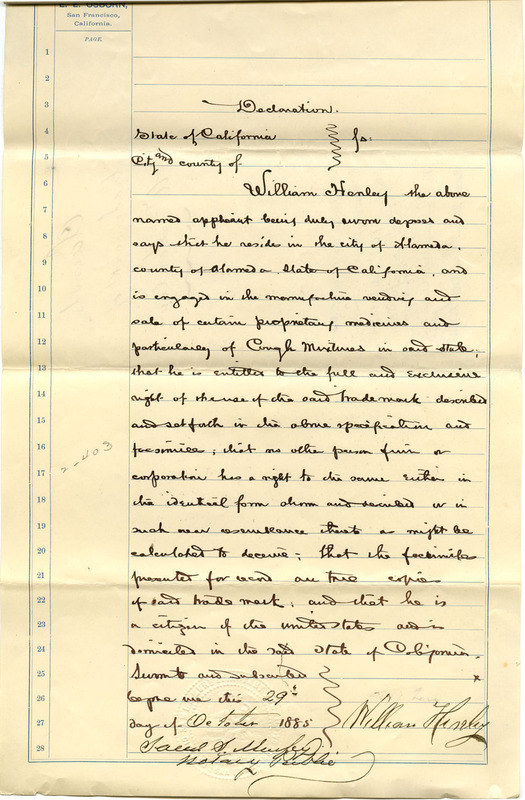 L. E. OSBORN,
San Francisco,
California.
PAGE.
1
2
3 Declaration.
4 State of California } ss.
5 City and county of
6 William Henley the above
7 named applicant being duly sworn deposes and
8 says that he reside in the city of Alameda.
9 county of Alameda State of California, and
10 is engaged in the manufacture vending and
11 sale of certain proprietary medicines and
12 particularly of Cough Mixtures in said state;
13 that he is entitled to the full and exclusive
14 right of the use of the said trade mark described
15 and set forth in the above specification and
16 facsimile; that no other person firm or
17 corporation has a right to the same either in
18 the identical form shown and described or in
19 such near resemblance thereto as might be
20 calculated to deceive; that the facsimiles
21 presented for record are true copies
22 of said trade mark; and that he is
23 a citizen of the United States and is
24 domiciled in the said State of California.
25 Sworn to and subscribed
26 before me this 29th
27 day of October 1885 William Henley
28 Notary Public
2-403